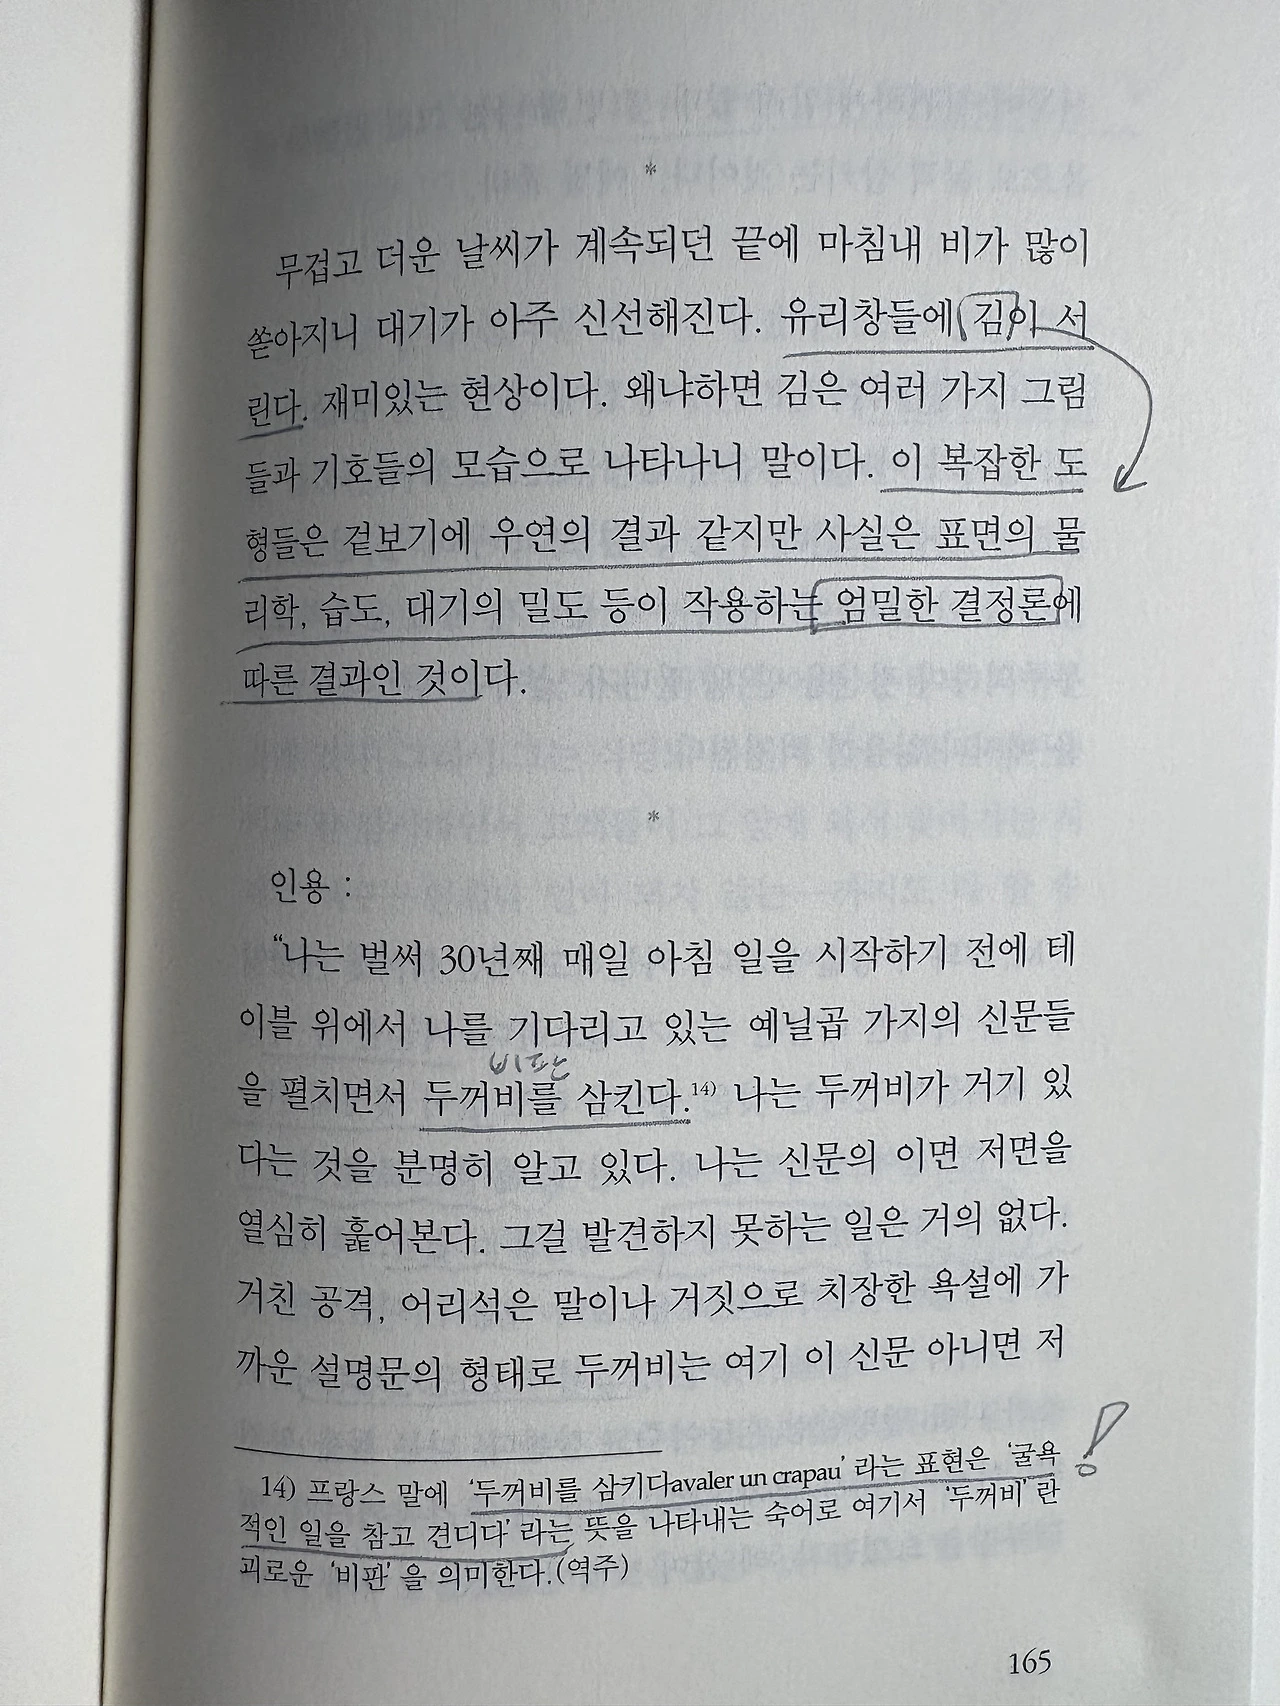 *
무겁고 더운 날씨가 계속되던 끝에 마침내 비가 많이
쏟아지니 대기가 아주 신선해진다. 유리창들에 김이 서
린다. 재미있는 현상이다. 왜냐하면 김은 여러 가지 그림
들과 기호들의 모습으로 나타나니 말이다. 이 복잡한 도
형들은 겉보기에 우연의 결과 같지만 사실은 표면의 물
리학, 습도, 대기의 밀도 등이 작용하는 엄밀한 결정론에
따른 결과인 것이다.
*
인용 :
“나는 벌써 30년째 매일 아침 일을 시작하기 전에 테
이블 위에서 나를 기다리고 있는 예닐곱 가지의 신문들
비판
을 펼치면서 두꺼비를 삼킨다.14) 나는 두꺼비가 거기 있
다는 것을 분명히 알고 있다. 나는 신문의 이면 저면을
열심히 훑어본다. 그걸 발견하지 못하는 일은 거의 없다.
거친 공격, 어리석은 말이나 거짓으로 치장한 욕설에 가
까운 설명문의 형태로 두꺼비는 여기 이 신문 아니면 저
14) 프랑스 말에 ‘두꺼비를 삼키다avaler un crapau’ 라는 표현은 ‘굴욕 !
적인 일을 참고 견디다’ 라는 뜻을 나타내는 숙어로 여기서 ‘두꺼비’ 란
괴로운 ‘비판’ 을 의미한다.(역주)
165